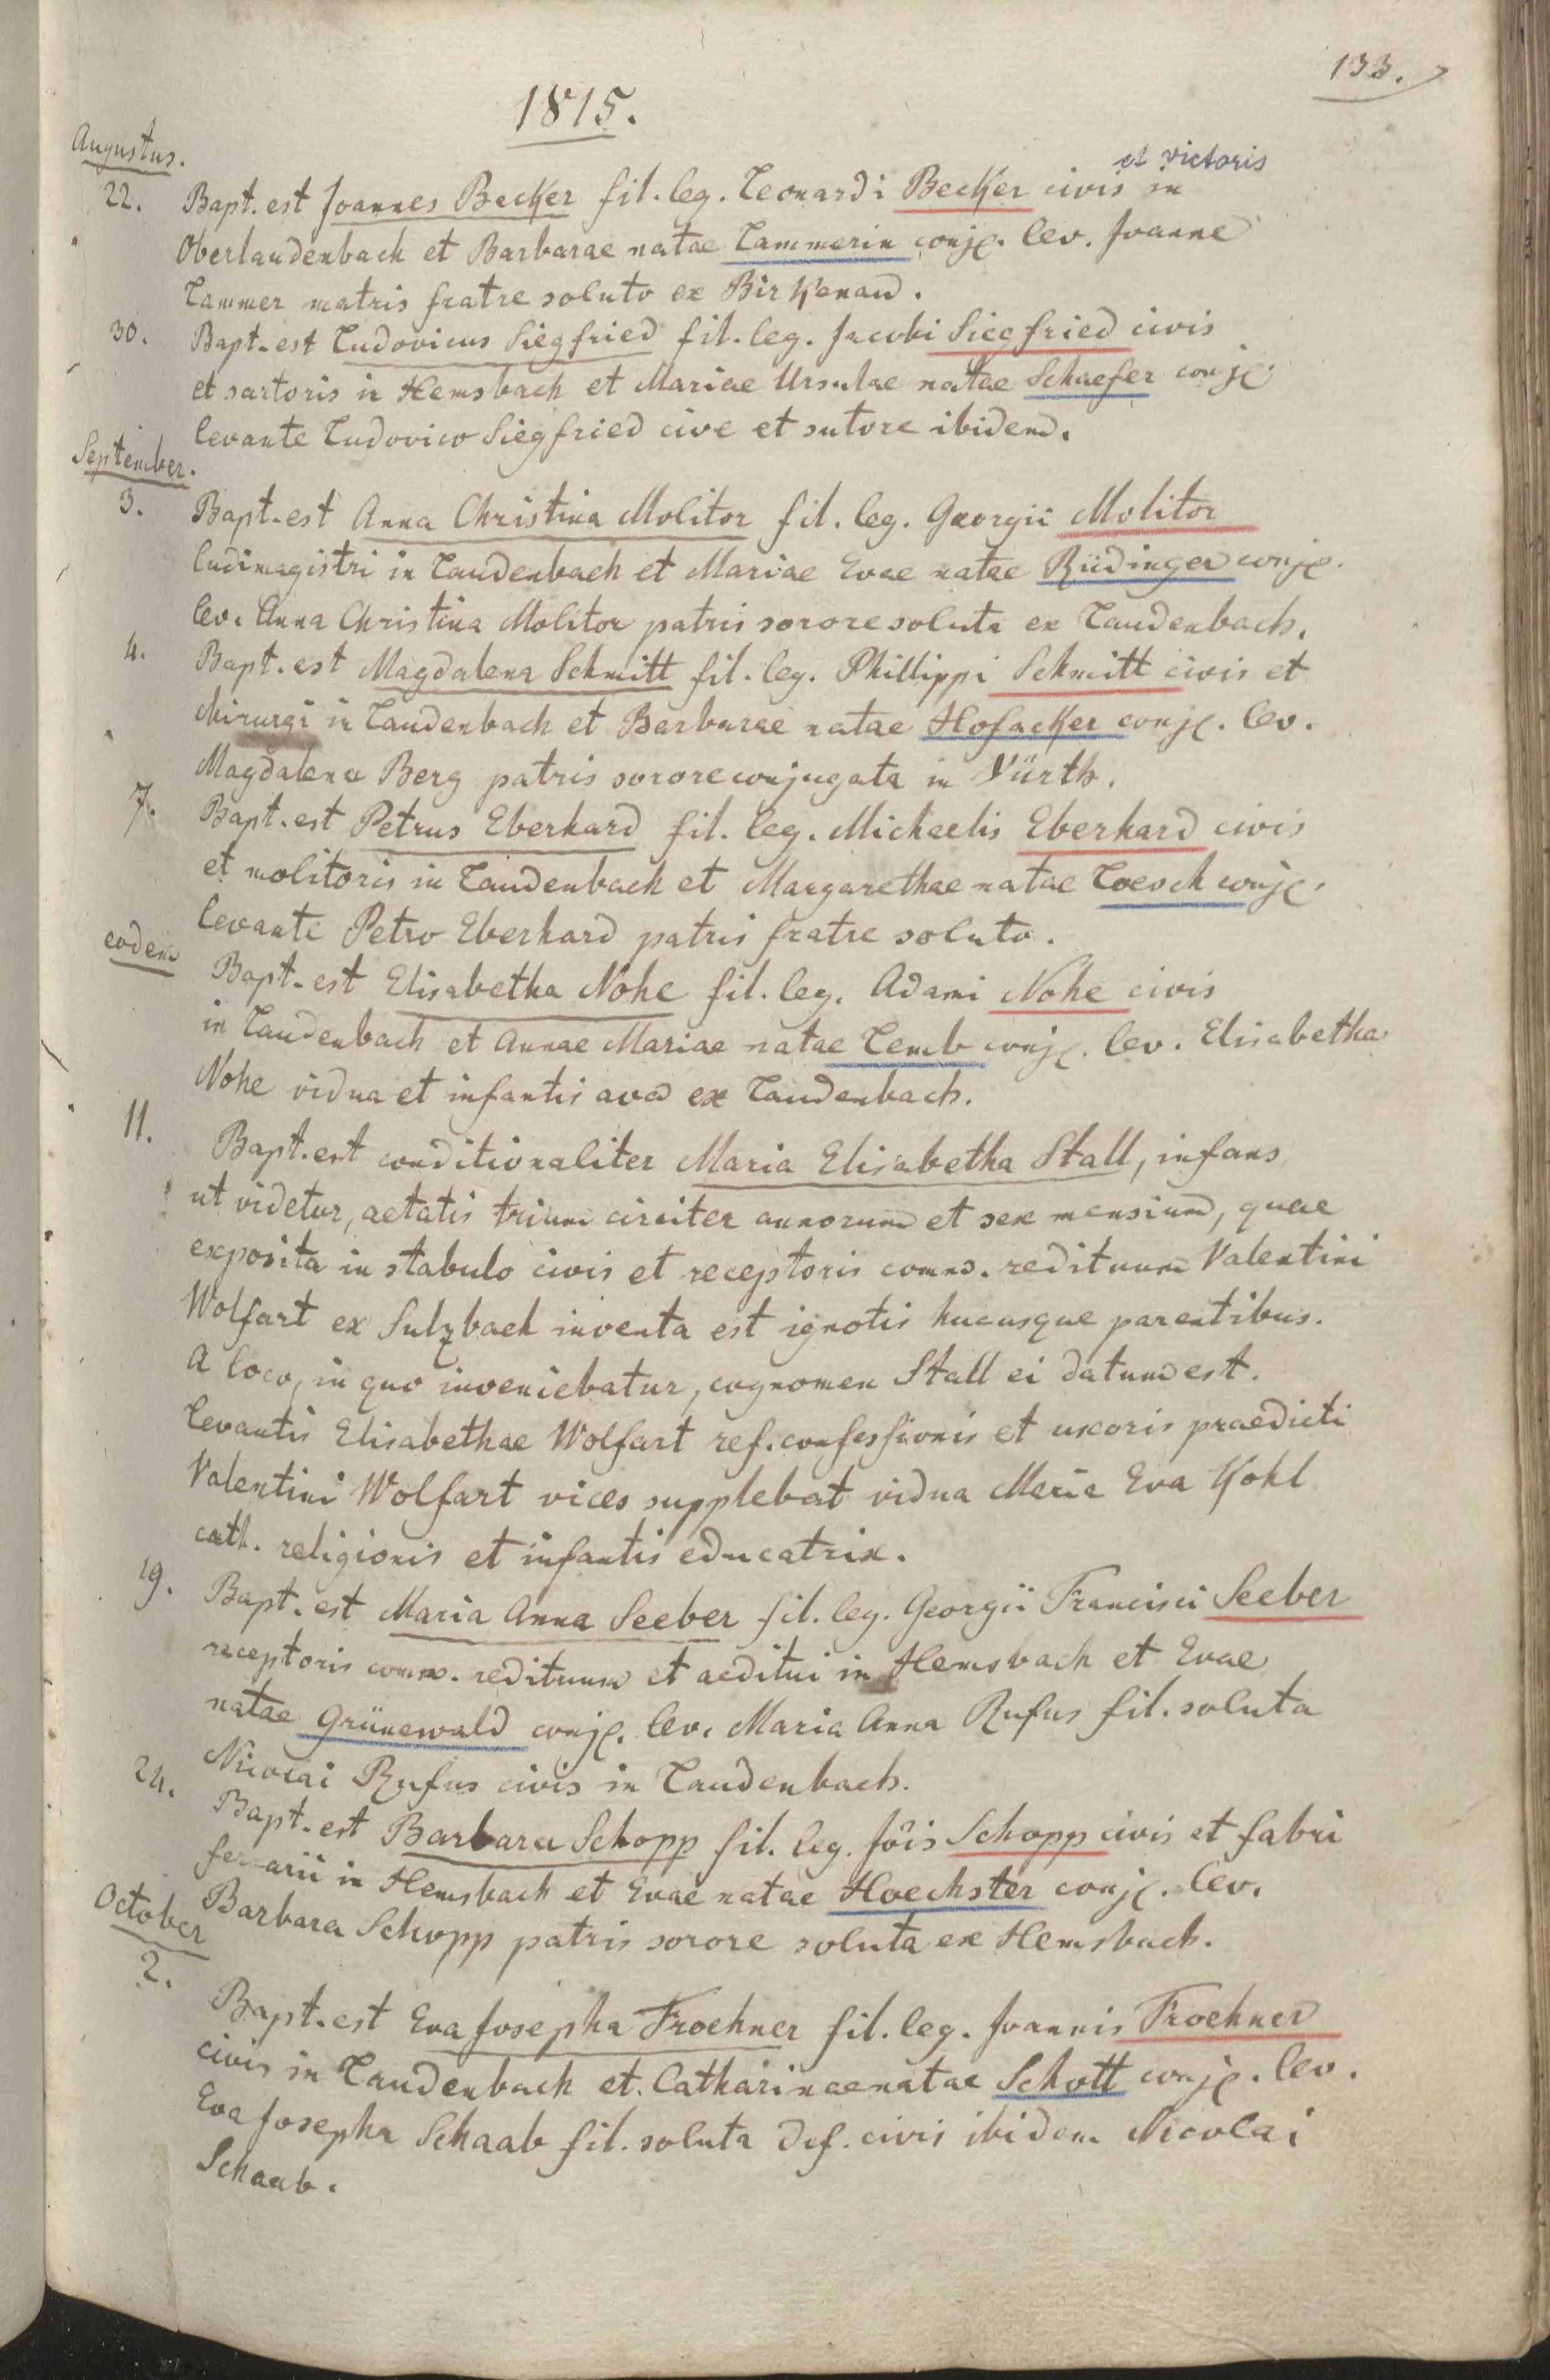 133.
1815.
Augustus.
et victoris
22. Bapt. est Joannes Becker fil. leg. Leonardi Becker civis in
Oberlaudenbach et Barbarae natae Lammerin conjc. lev. Joanne
Lammer matris fratre soluto ex Birkenau.
30. Bapt. est Ludovicus Siegfried fil. leg. Jacobi Siegfried civis
et sartoris in Hemsbach et Mariae Ursulae natae Schaefer conjc.
levante Ludovico Siegfried cive et sutore ibidem.
September.
3. Bapt. est Anna Christina Molitor fil. leg. Georgii Molitor
ludimagistri in Laudenbach et Mariae Evae natae Rüdinger conjc.
lev. Anna Christina Molitor patris sorore soluta ex Laudenbach.
4. Bapt. est Magdalena Schmitt fil. leg. Phillippi Schmitt civis et
chirurgi in Laudenbach et Barbarae natae Hofacker conjc. lev.
Magdalena Berg patris sorore conjugata in Fürth.
7. Bapt. est Petrus Eberhard fil. leg. Michaelis Eberhard civis
et molitoris in Laudenbach et Margarethae natae Loesch conjc.
levante Petro Eberhard patris fratre soluto.
eodem Bapt. est Elisabetha Nohe fil. leg. Adami Nohe civis
in Laudenbach et Annae Mariae natae Lemb conjc. lev. Elisabetha
Nohe vidua et infantis ava ex Laudenbach.
11. Bapt. est conditionaliter Maria Elisabetha Stall, infans
ut videtur, aetatis trium circiter annorum et sex mensium, quae
exposita in stabulo civis et receptoris comm. redituum Valentini
Wolfart ex Sulzbach inventa est ignotis hucusque parentibus.
A loco, in quo inveniebatur, cognomen Stall ei datum est.
Levantis Elisabethae Wolfart ref. confessionis et uxoris praedicti
Valentini Wolfart vices supplebat vidua Maria Eva Kohl
cath. religionis et infantis educatrix.
19. Bapt. est Maria Anna Seeber fil. leg. Georgii Francisci Seeber
receptoris comm. redituum et aeditui in Hemsbach et Evae
natae Grünewald conjc. lev. Maria Anna Rufus fil. soluta
Nicolai Rufus civis in Laudenbach.
24. Bapt. est Barbara Schopp fil. leg. Jõis Schopp civis et fabri
ferrarii in Hemsbach et Evae natae Hoechster conjc. lev.
Barbara Schopp patris sorore soluta ex Hemsbach.
October
2. Bapt. est Eva Josepha Froehner fil. leg. Joannis Froehner
civis in Laudenbach et Catharinae natae Schott conjc. lev.
Eva Josepha Schaab fil. soluta def. civis ibidem Nicolai
Schaab.